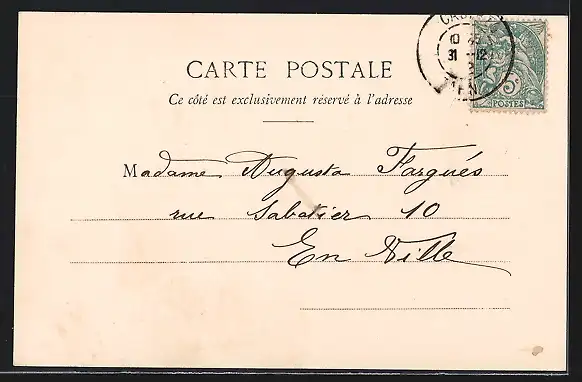 10 45
31 -12
CARTE POSTALE
5c
POSTES
Ce côté est exclusivement réservé à l'adresse
Madame Augusta Fargués
rue Sabatier 10
En Ville